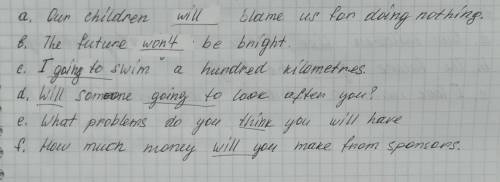 a. Our children will blame us for doing nothing.
b. The future won't be bright.
c. I going to swim a hundred kilometres.
d. Will someone going to look after you?
e. What problems do you think you will have
f. How much money will you make from sponsors.